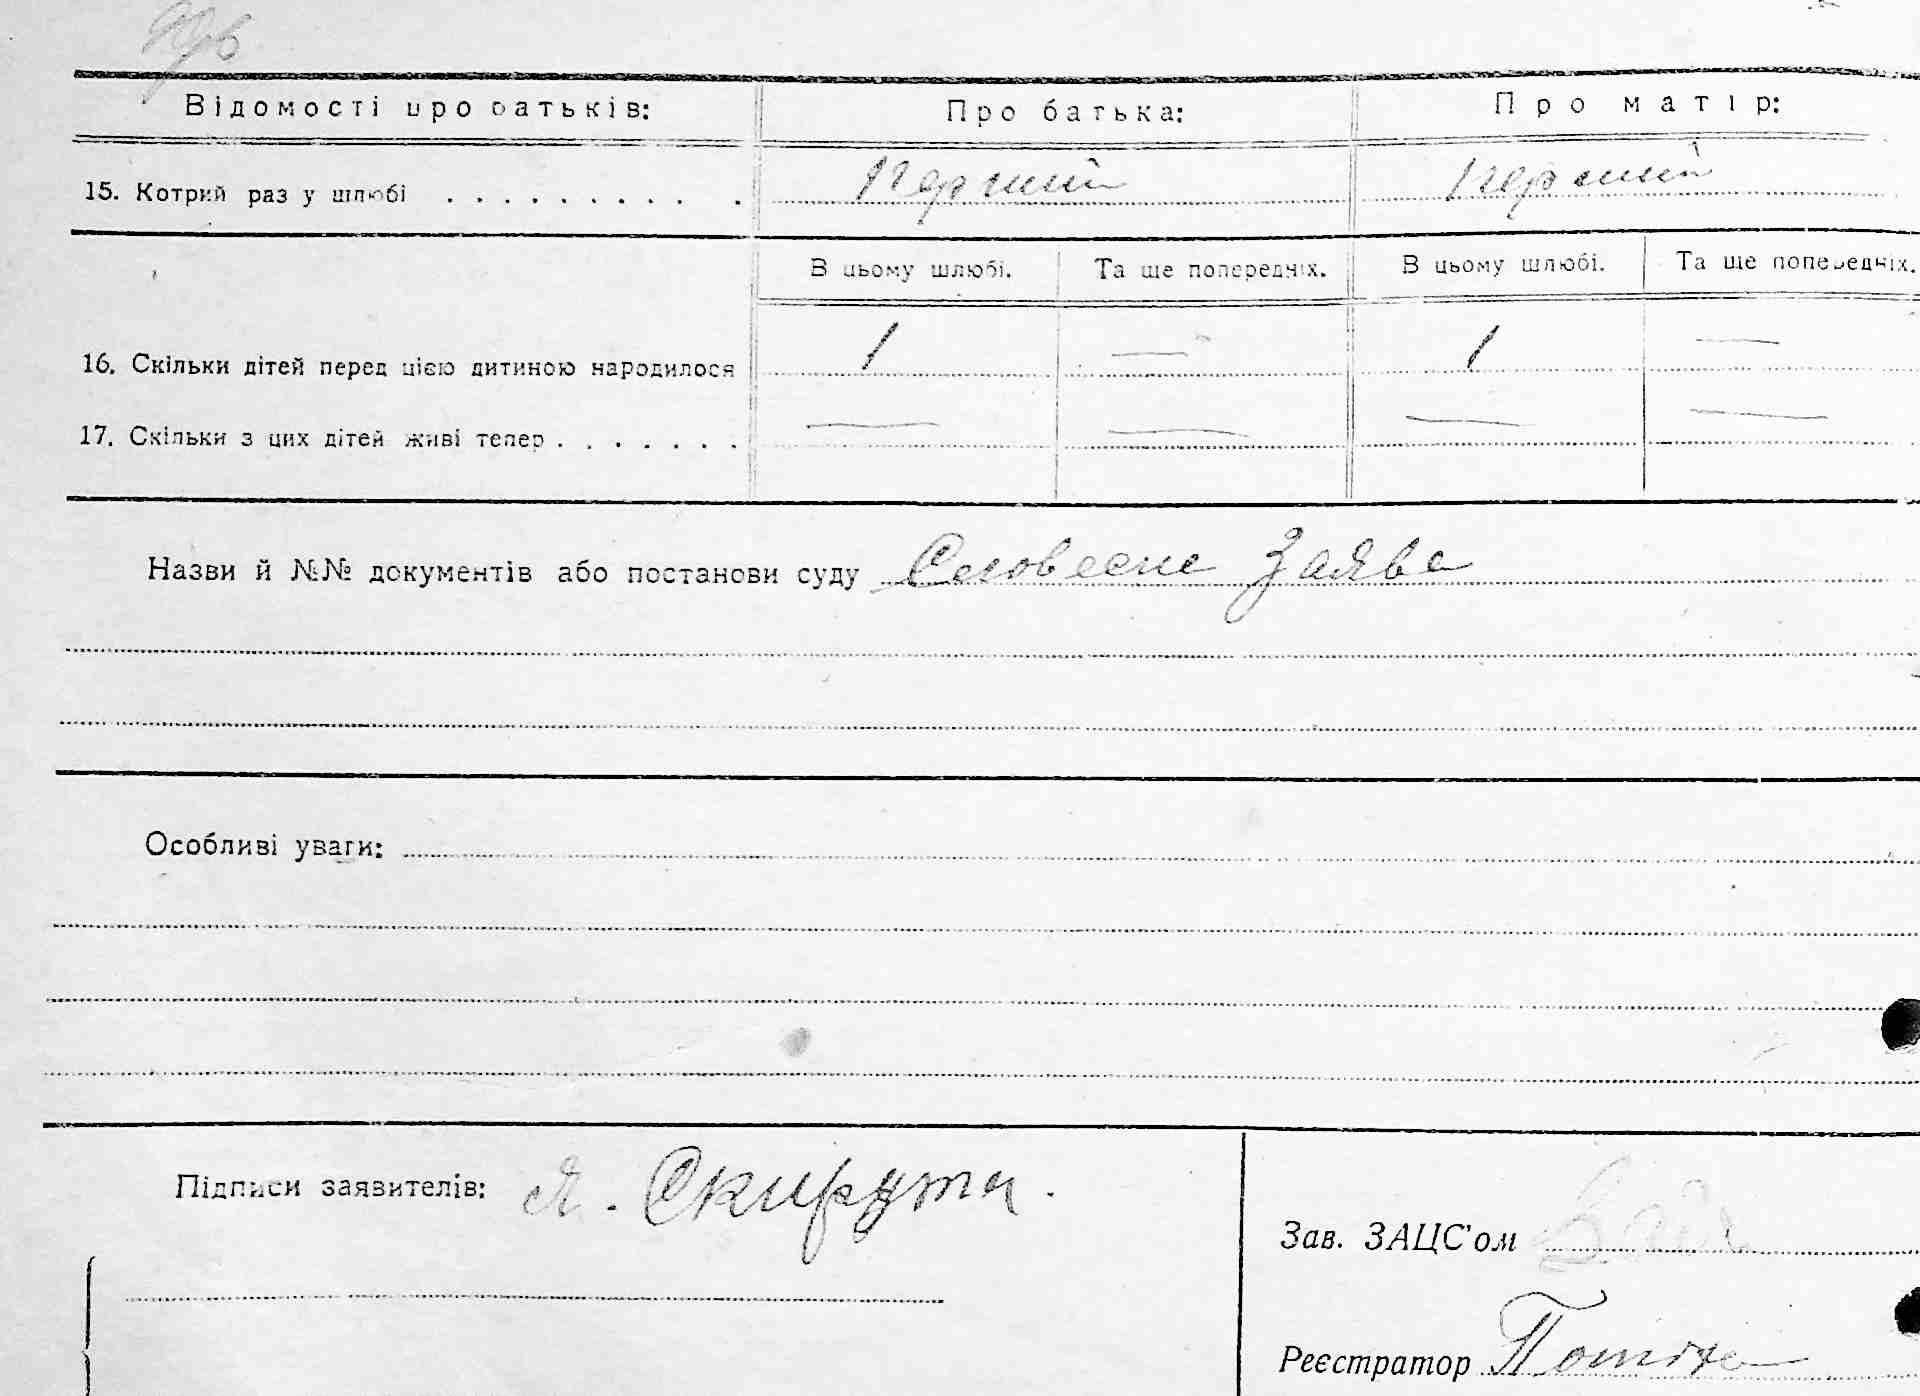 Відомості про батьків: Про батька: Про матір:
15. Котрий раз у шлюбі . . . . . . . . . . перший перший
В цьому шлюбі. Та ще попередніх. В цьому шлюбі. Та ще попередніх.
16. Скільки дітей перед цією дитиною народилося 1 — 1 —
17. Скільки з цих дітей живі тепер . . . . . . . — — — —
Назви й №№ документів або постанови суду Словесне Заява
Особливі уваги:
Підписи заявителів: Я. Скирута.
Зав. ЗАЦС'ом
Реєстратор